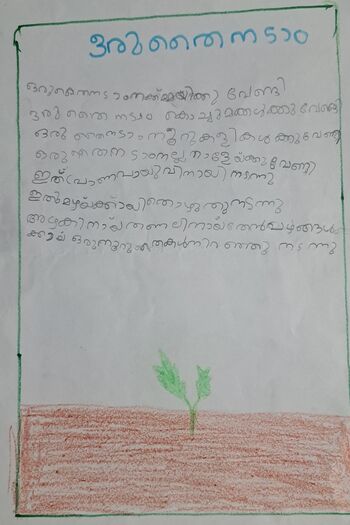 ഒരു തൈ നടാം
ഒരുതൈനടാംനമ്മക്കമ്മയ്ക്കു വേണ്ടി
ഒരു തൈ നടാം കൊച്ചുമക്കൾക്കു വേണ്ടി
ഒരു തൈനടാം നൂറുകിളികൾ ക്കു വേണ്ടി
ഒരുതൈന ടാംനല്ല നാളേയ്ക്കുവേണ്ടി
ഇത്പ്രാണവായുവിനായി നടന്നു
ഇത്മഴയ്ക്കായിതൊഴുതുനടന്നു
അഴകിനായ്തണലിനായ്തേൻപഴങ്ങൾ
ക്കായ് ഒരുനൂറുതൈകൾനിറ ഞ്ഞു നടന്നു